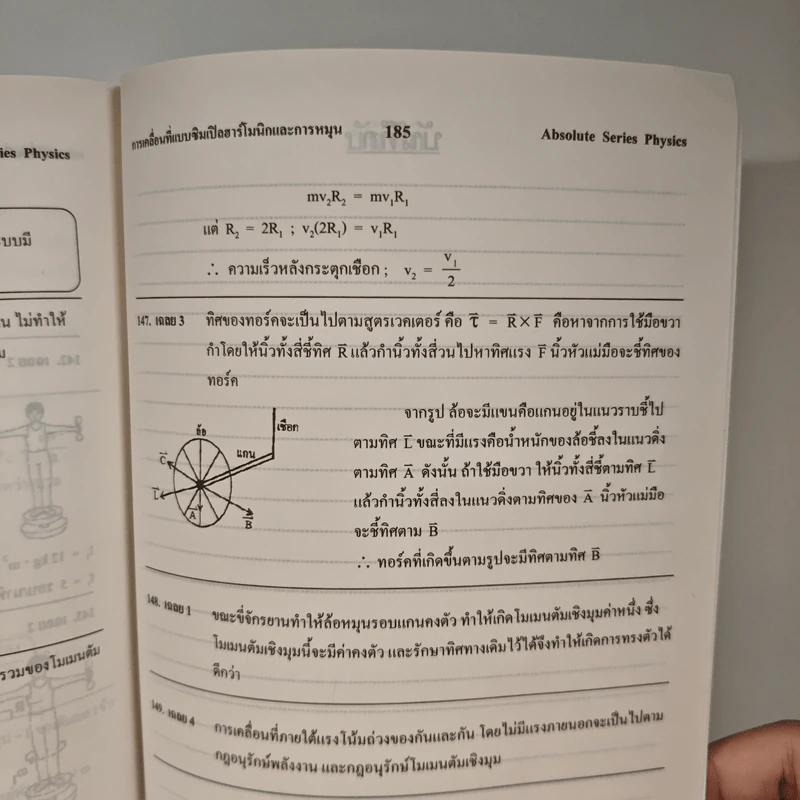 ies Physics
ะบบมี
น ไม่ทำให้
รวมของโมเมนตัม
การเคลื่อนที่แบบซิมเปิลฮาร์โมนิกและการหมุน 185 Absolute Series Physics
mv₂R₂ = mv₁R₁
แต่ R₂ = 2R₁ ; v₂(2R₁) = v₁R₁
∴ ความเร็วหลังกระตุกเชือก ; v₂ = v₁/2
147. เฉลย 3 ทิศของทอร์คจะเป็นไปตามสูตรเวคเตอร์ คือ τ⃗ = R⃗ × F⃗ คือหาจากการใช้มือขวา
กำโดยให้นิ้วทั้งสี่ชี้ทิศ R⃗ แล้วกำนิ้วทั้งสี่วนไปหาทิศแรง F⃗ นิ้วหัวแม่มือจะชี้ทิศของ
ทอร์ค
ล้อ
เชือก
แกน
C⃗
L⃗
A⃗
B⃗
จากรูป ล้อจะมีแขนคือแกนอยู่ในแนวราบชี้ไป
ตามทิศ L⃗ ขณะที่มีแรงคือน้ำหนักของล้อชี้ลงในแนวดิ่ง
ตามทิศ A⃗ ดังนั้น ถ้าใช้มือขวา ให้นิ้วทั้งสี่ชี้ตามทิศ L⃗
แล้วกำนิ้วทั้งสี่ลงในแนวดิ่งตามทิศของ A⃗ นิ้วหัวแม่มือ
จะชี้ทิศตาม B⃗
∴ ทอร์คที่เกิดขึ้นตามรูปจะมีทิศตามทิศ B⃗
148. เฉลย 1 ขณะขี่จักรยานทำให้ล้อหมุนรอบแกนคงตัว ทำให้เกิดโมเมนตัมเชิงมุมค่าหนึ่ง ซึ่ง
โมเมนตัมเชิงมุมนี้จะมีค่าคงตัว และรักษาทิศทางเดิมไว้ได้จึงทำให้เกิดการทรงตัวได้
ดีกว่า
149. เฉลย 4 การเคลื่อนที่ภายใต้แรงโน้มถ่วงของกันและกัน โดยไม่มีแรงภายนอกจะเป็นไปตาม
กฎอนุรักษ์พลังงาน และกฎอนุรักษ์โมเมนตัมเชิงมุม